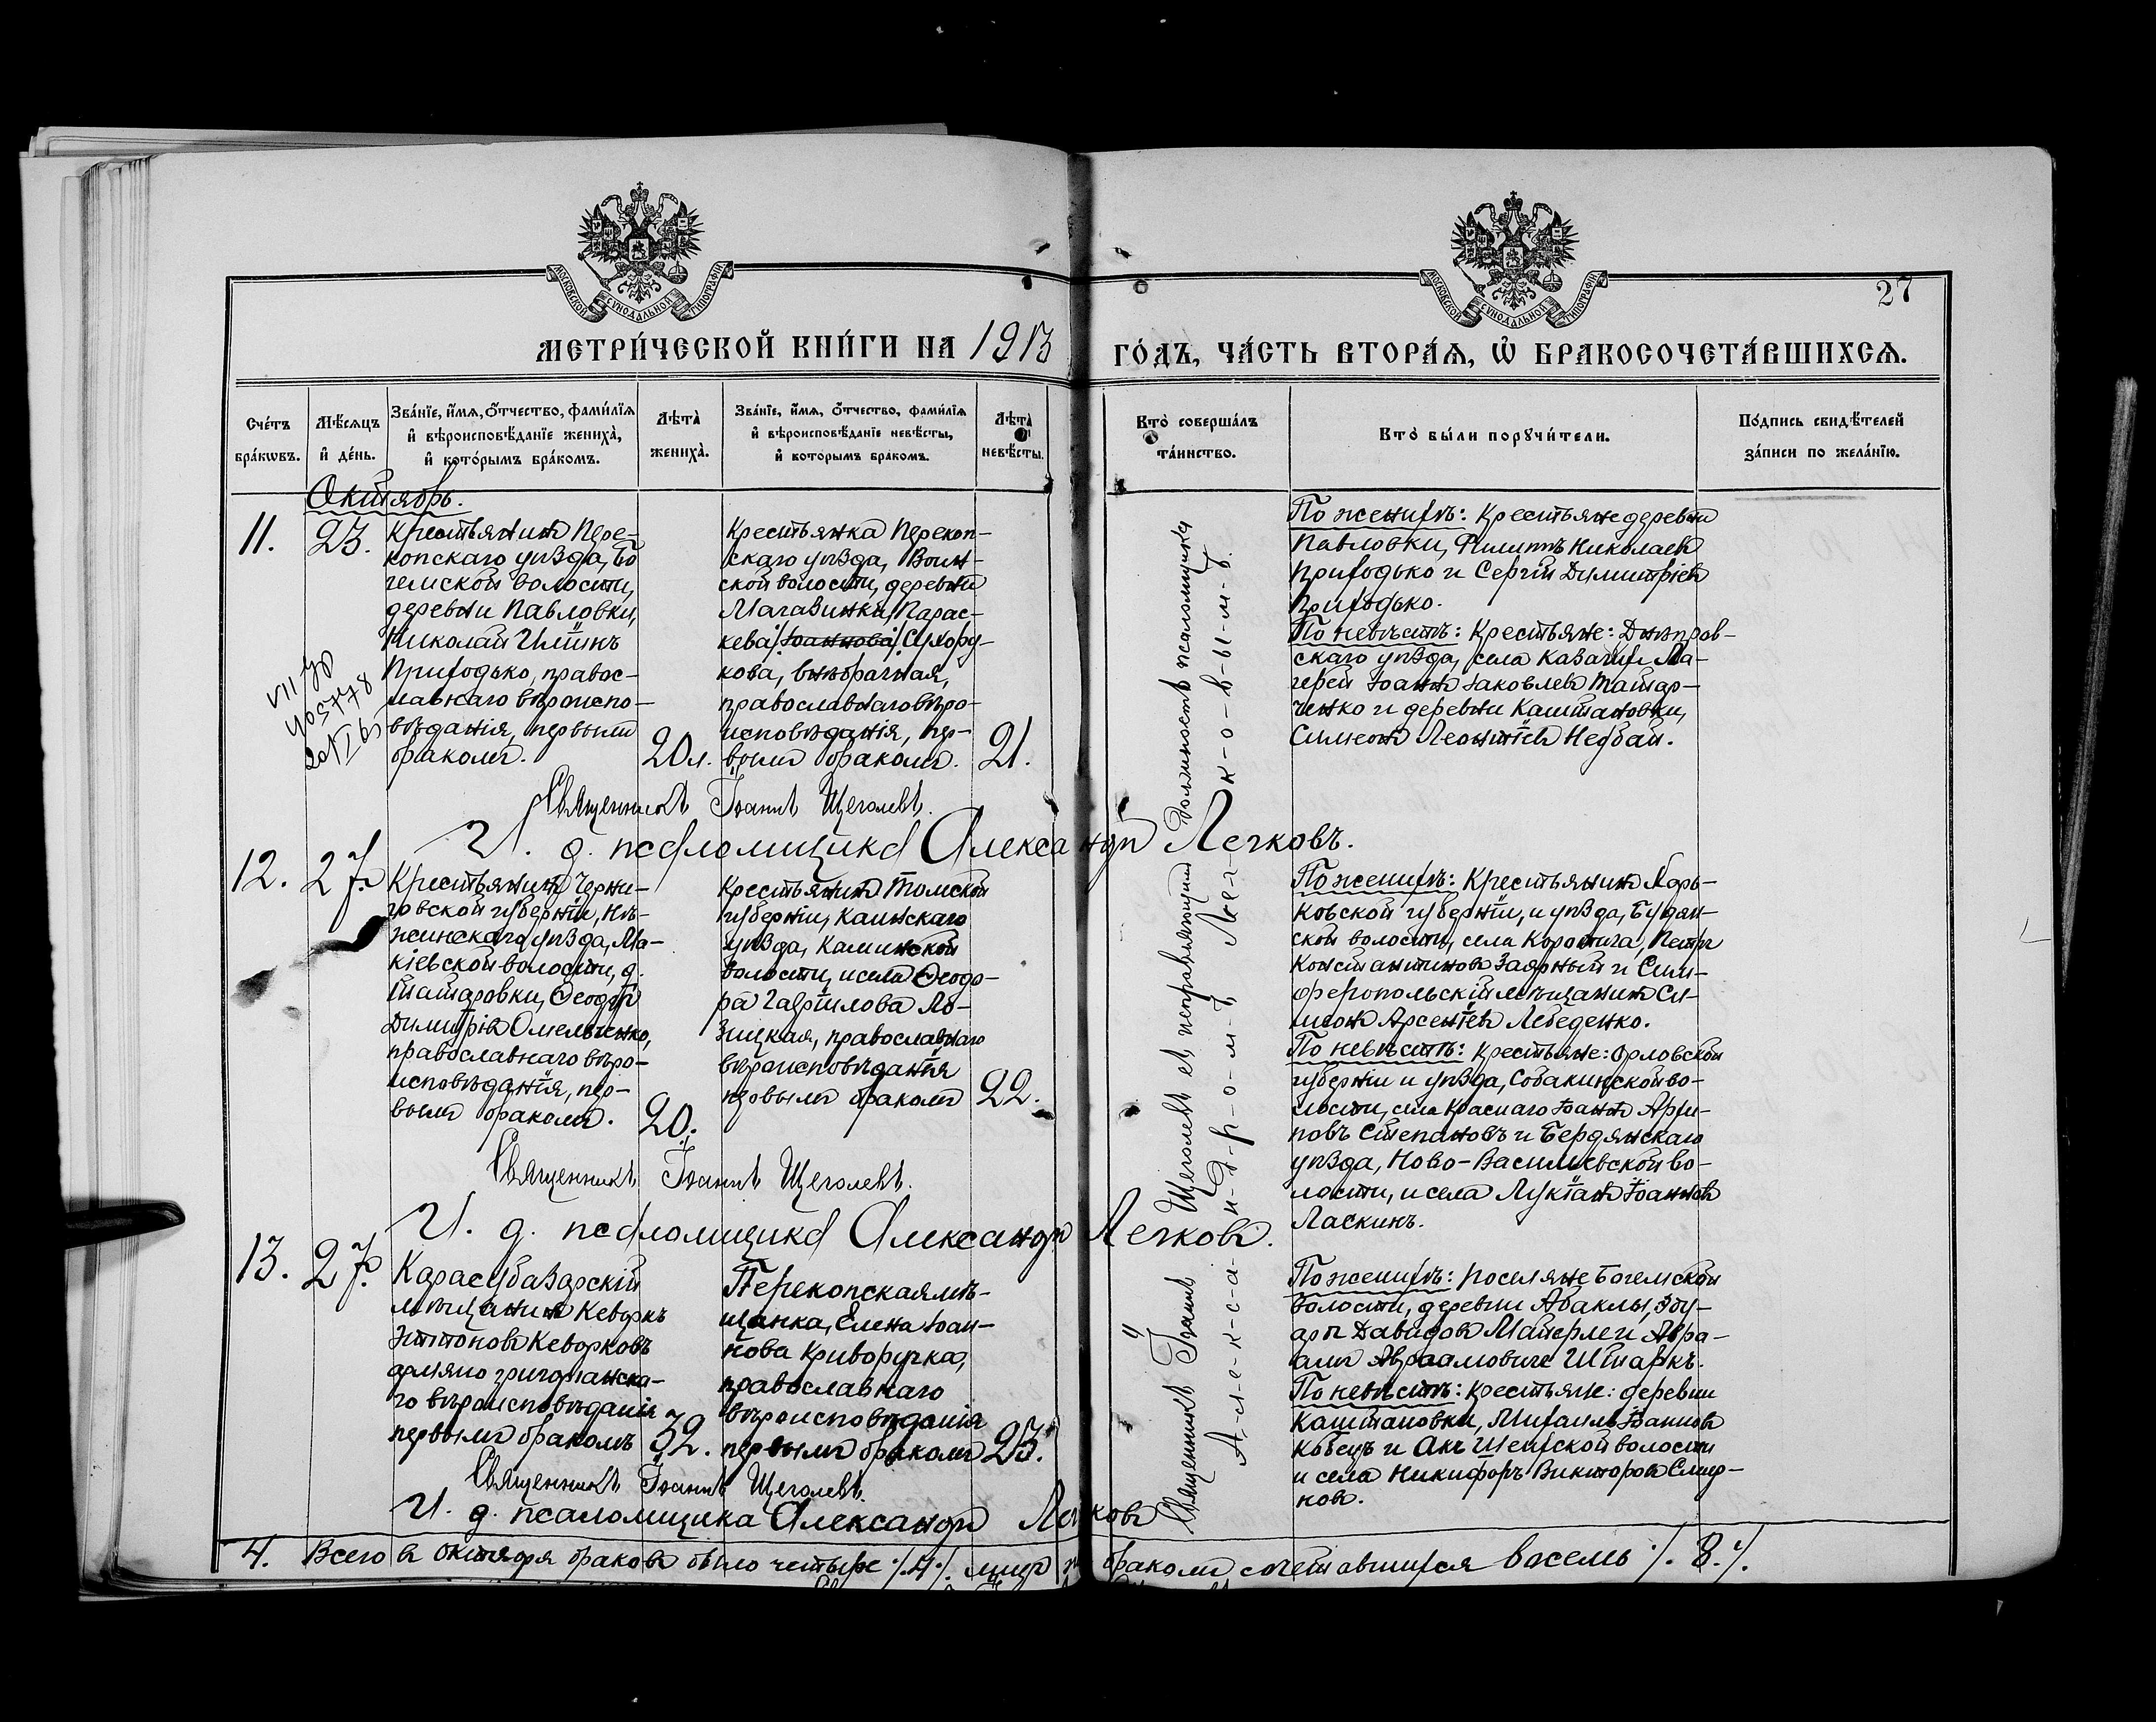 МОСКОВСКОЙ СѴНОДАЛЬНОЙ ТИПОГРАФІИ
МОСКОВСКОЙ СѴНОДАЛЬНОЙ ТИПОГРАФІИ
27
МЕТРИ́ЧЕСКОЙ КНИ́ГИ НА 1913
ГО́ДЪ, ЧА́СТЬ ВТОРА́Ѧ, Ѡ҆ БРАКОСОЧЕТА́ВШИХСѦ.
Сче́тъ бра́кѡвъ.
Мѣ́сѧцъ и҆ де́нь.
Зва́нїе, и҆́мѧ, ѻ҆́тчество, фами́лїѧ и҆ вѣроисповѣ́данїе жениха̀, и҆ кото́рымъ бра́комъ.
Лѣ́та̀ жениха̀.
Зва́нїе, и҆́мѧ, ѻ҆́тчество, фами́лїѧ и҆ вѣроисповѣ́данїе невѣ́сты, и҆ которымъ бракомъ.
Лѣ́та̀ невѣ́сты.
Кто̀ соверша́лъ та́инство.
Кто̀ бы́ли порꙋчи́тели.
По́дпись свидѣ́телей за́писи по жела́нїю.
Октябрь.
11.
23.
Крестьянинъ Пере-
копскаго уѣзда, Бо
гемской волости,
деревни Павловки,
Николай Иліинъ
Приходько, правос-
лавнаго вѣроиспо-
вѣданія, первымъ
бракомъ.
20 л.
Крестьянка Перекоп-
скаго уѣзда, Воин-
ской волости, деревни
Магазинки, Парас-
кева /Іоаннова/ Сухору-
кова, внѣбрачная,
православнаго вѣро-
исповѣданія, пер-
вымъ бракомъ.
21.
По женихѣ: Крестьяне деревни
Павловки, Филиппъ Николаевъ
Приходько и Сергій Димитріевъ
Приходько.
По невѣстѣ: Крестьяне: Днѣпров-
скаго уѣзда, села Казачьи Ла-
гери Іоаннъ Іаковлевъ Татар-
ченко и деревни Каштановки,
Симеонъ Леонтіевъ Недбай.
Священникъ Іоаннъ Щеголевъ.
И. д. псаломщика Александръ Легковъ.
12.
27.
Крестьянинъ Черни-
говской губерніи, Нѣ-
жинскаго уѣзда, Ма-
кіевской волости, д.
Татаровки, Ѳеодоръ
Димитріевъ Омельченко,
православнаго вѣро-
исповѣданія, пер-
вымъ бракомъ.
20.
Крестьянинъ Томской
губерніи, Каинскаго
уѣзда, Каминской
волости, и села Ѳеодо-
ра Гавріилова Ло-
зицкая, православнаго
вѣроисповѣданія
первымъ бракомъ
22.
По женихѣ: Крестьянинъ Харь-
ковской губерніи, и уѣзда, Будян-
ской волости, села Коротича, Петръ
Константиновъ Заярный и Сим-
феропольскій мѣщанинъ Си-
меонъ Арсеніевъ Лебеденко.
По невѣстѣ: Крестьяне: Орловской
губерніи и уѣзда, Собакинской во-
лости, села Краснаго Іоаннъ Архи-
повъ Степановъ и Бердянскаго
уѣзда, Ново-Васильевской во-
лости, и села Лукіанъ Іоанновъ
Ласкинъ.
Священникъ Іоаннъ Щеголевъ.
И. д. псаломщика Александръ Легковъ.
13.
27.
Карасубазарскій
мѣщанинъ Кеворкъ
Кеворковъ
армяно григоріанска-
го вѣроисповѣданія
первымъ бракомъ
32.
Перекопская мѣ-
щанка, Елена Іоан-
нова Криворучка,
православнаго
вѣроисповѣданія
первымъ бракомъ
23.
По женихѣ: поселяне Богемской
волости, деревни Абаклы, Эду-
ардъ Давидовъ Майерлеи, Авра-
амъ Авраамовичъ Штаркъ.
По невѣстѣ: Крестьяне: деревни
Каштановки, Михаилъ Іоанновъ
Кобецъ и Акъ Шеихской волости
и села Никифоръ Викторовъ Смир-
новъ.
Священникъ Іоаннъ Щеголевъ.
И. д. псаломщика Александръ Легковъ
Священникъ Іоаннъ Щеголевъ съ исправляющимъ должность псаломщика
А-л-е-к-с-а-н-д-р-о-м-ъ Лег-к-о-в-ы-м-ъ.
4. Всего въ октябрѣ браковъ было четыре ./.4./. лицъ бракомъ сочетавшихся восемь ./.8./.